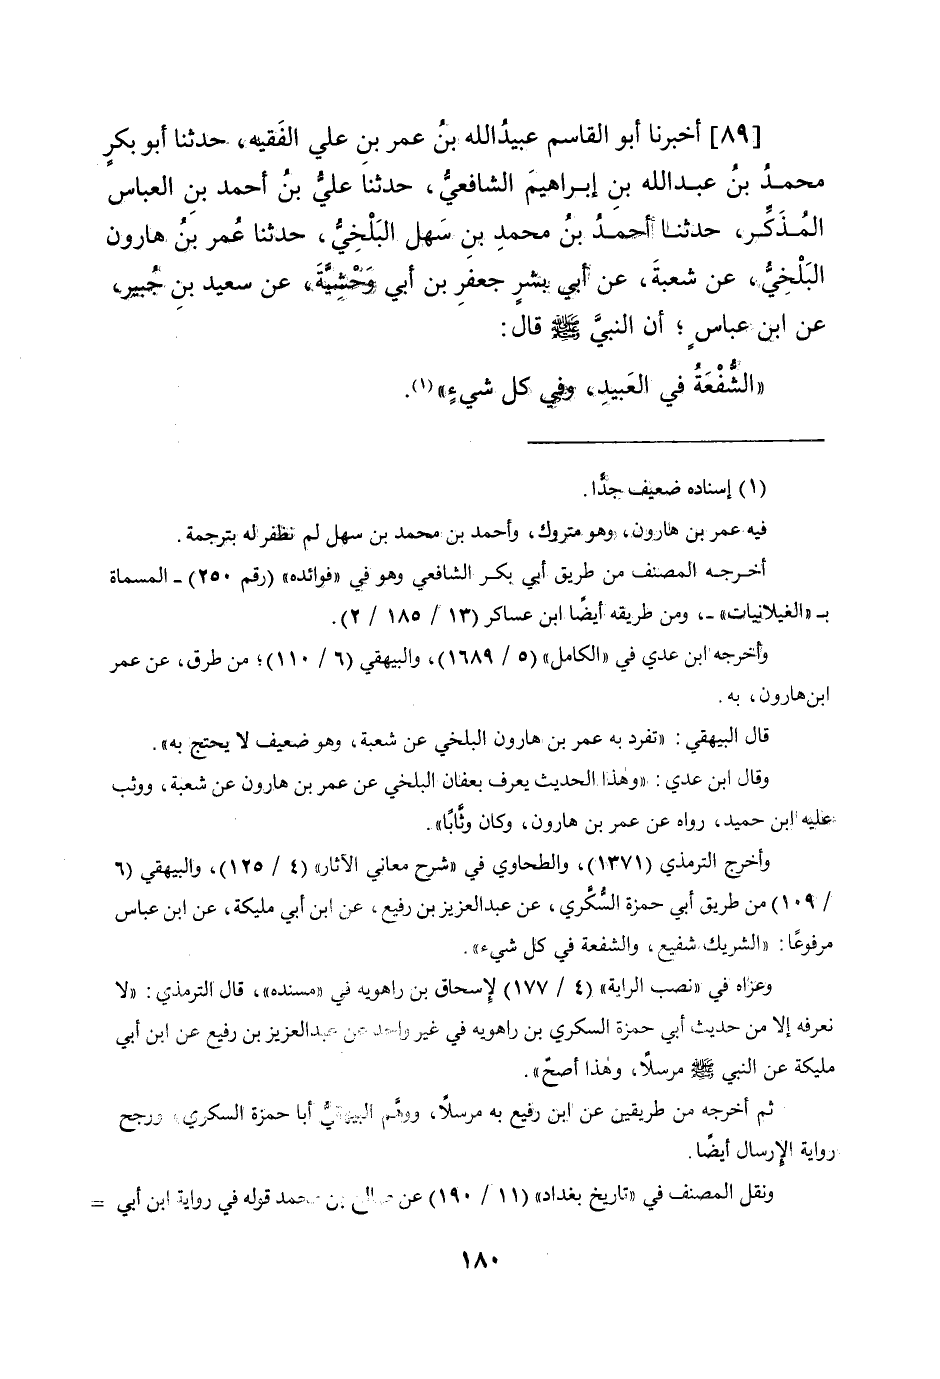 [٨٩] أخبرنا أبو القاسم عبيدُالله بنُ عمر بنِ علي الفَقيه، حدثنا أبو بكرٍ
محمدُ بنُ عبدالله بن إبراهيمَ الشافعيُّ، حدثنا عليُّ بنُ أحمد بنِ العباس
المُذَكِّر، حدثنا أحمدُ بنُ محمدِ بنِ سَهل البَلْخِيُّ، حدثنا عُمر بنُ هارون
البَلْخِيُّ، عن شعبةَ، عن أبي بشرٍ جعفرِ بن أبي وَحْشِيَّةَ، عن سعيد بنِ جُبير،
عن ابن عباسٍ؛ أن النبيَّ ﷺ قال:
«الشُّفْعَةُ في العَبيدِ، وفي كل شيءٍ»(١).
(١) إسناده ضعيف جدًّا.
فيه عمر بن هارون، وهو متروك، وأحمد بن محمد بن سهل لم نظفر له بترجمة.
أخرجه المصنف من طريق أبي بكر الشافعي وهو في «فوائده» (رقم ٢٥٠) ـ المسماة
بـ «الغيلانيات» ـ، ومن طريقه أيضًا ابن عساكر (١٣ / ١٨٥ / ٢).
وأخرجه ابن عدي في «الكامل» (٥ / ١٦٨٩)، والبيهقي (٦ / ١١٠)؛ من طرق، عن عمر
ابن هارون، به.
قال البيهقي: «تفرد به عمر بن هارون البلخي عن شعبة، وهو ضعيف لا يحتج به».
وقال ابن عدي: «وهٰذا الحديث يعرف بعفان البلخي عن عمر بن هارون عن شعبة، ووثب
عليه ابن حميد، رواه عن عمر بن هارون، وكان وثَّابًا».
وأخرج الترمذي (١٣٧١)، والطحاوي في «شرح معاني الآثار» (٤ / ١٢٥)، والبيهقي (٦
/ ١٠٩) من طريق أبي حمزة السُّكَّري، عن عبدالعزيز بن رفيع، عن ابن أبي مليكة، عن ابن عباس
مرفوعًا: «الشريك شفيع، والشفعة في كل شيء».
وعزاه في «نصب الراية» (٤ / ١٧٧) لإسحاق بن راهويه في «مسنده»، قال الترمذي: «لا
نعرفه إلا من حديث أبي حمزة السكري بن راهويه في غير واحد عن عبدالعزيز بن رفيع عن ابن أبي
مليكة عن النبي ﷺ مرسلًا، وهٰذا أصحّ».
ثم أخرجه من طريقين عن ابن رفيع به مرسلًا، ووهَّم البيهقيُّ أبا حمزة السكري، ورجح
رواية الإرسال أيضًا.
ونقل المصنف في «تاريخ بغداد» (١١ / ١٩٠) عن صالح بن محمد قوله في رواية ابن أبي =
١٨٠